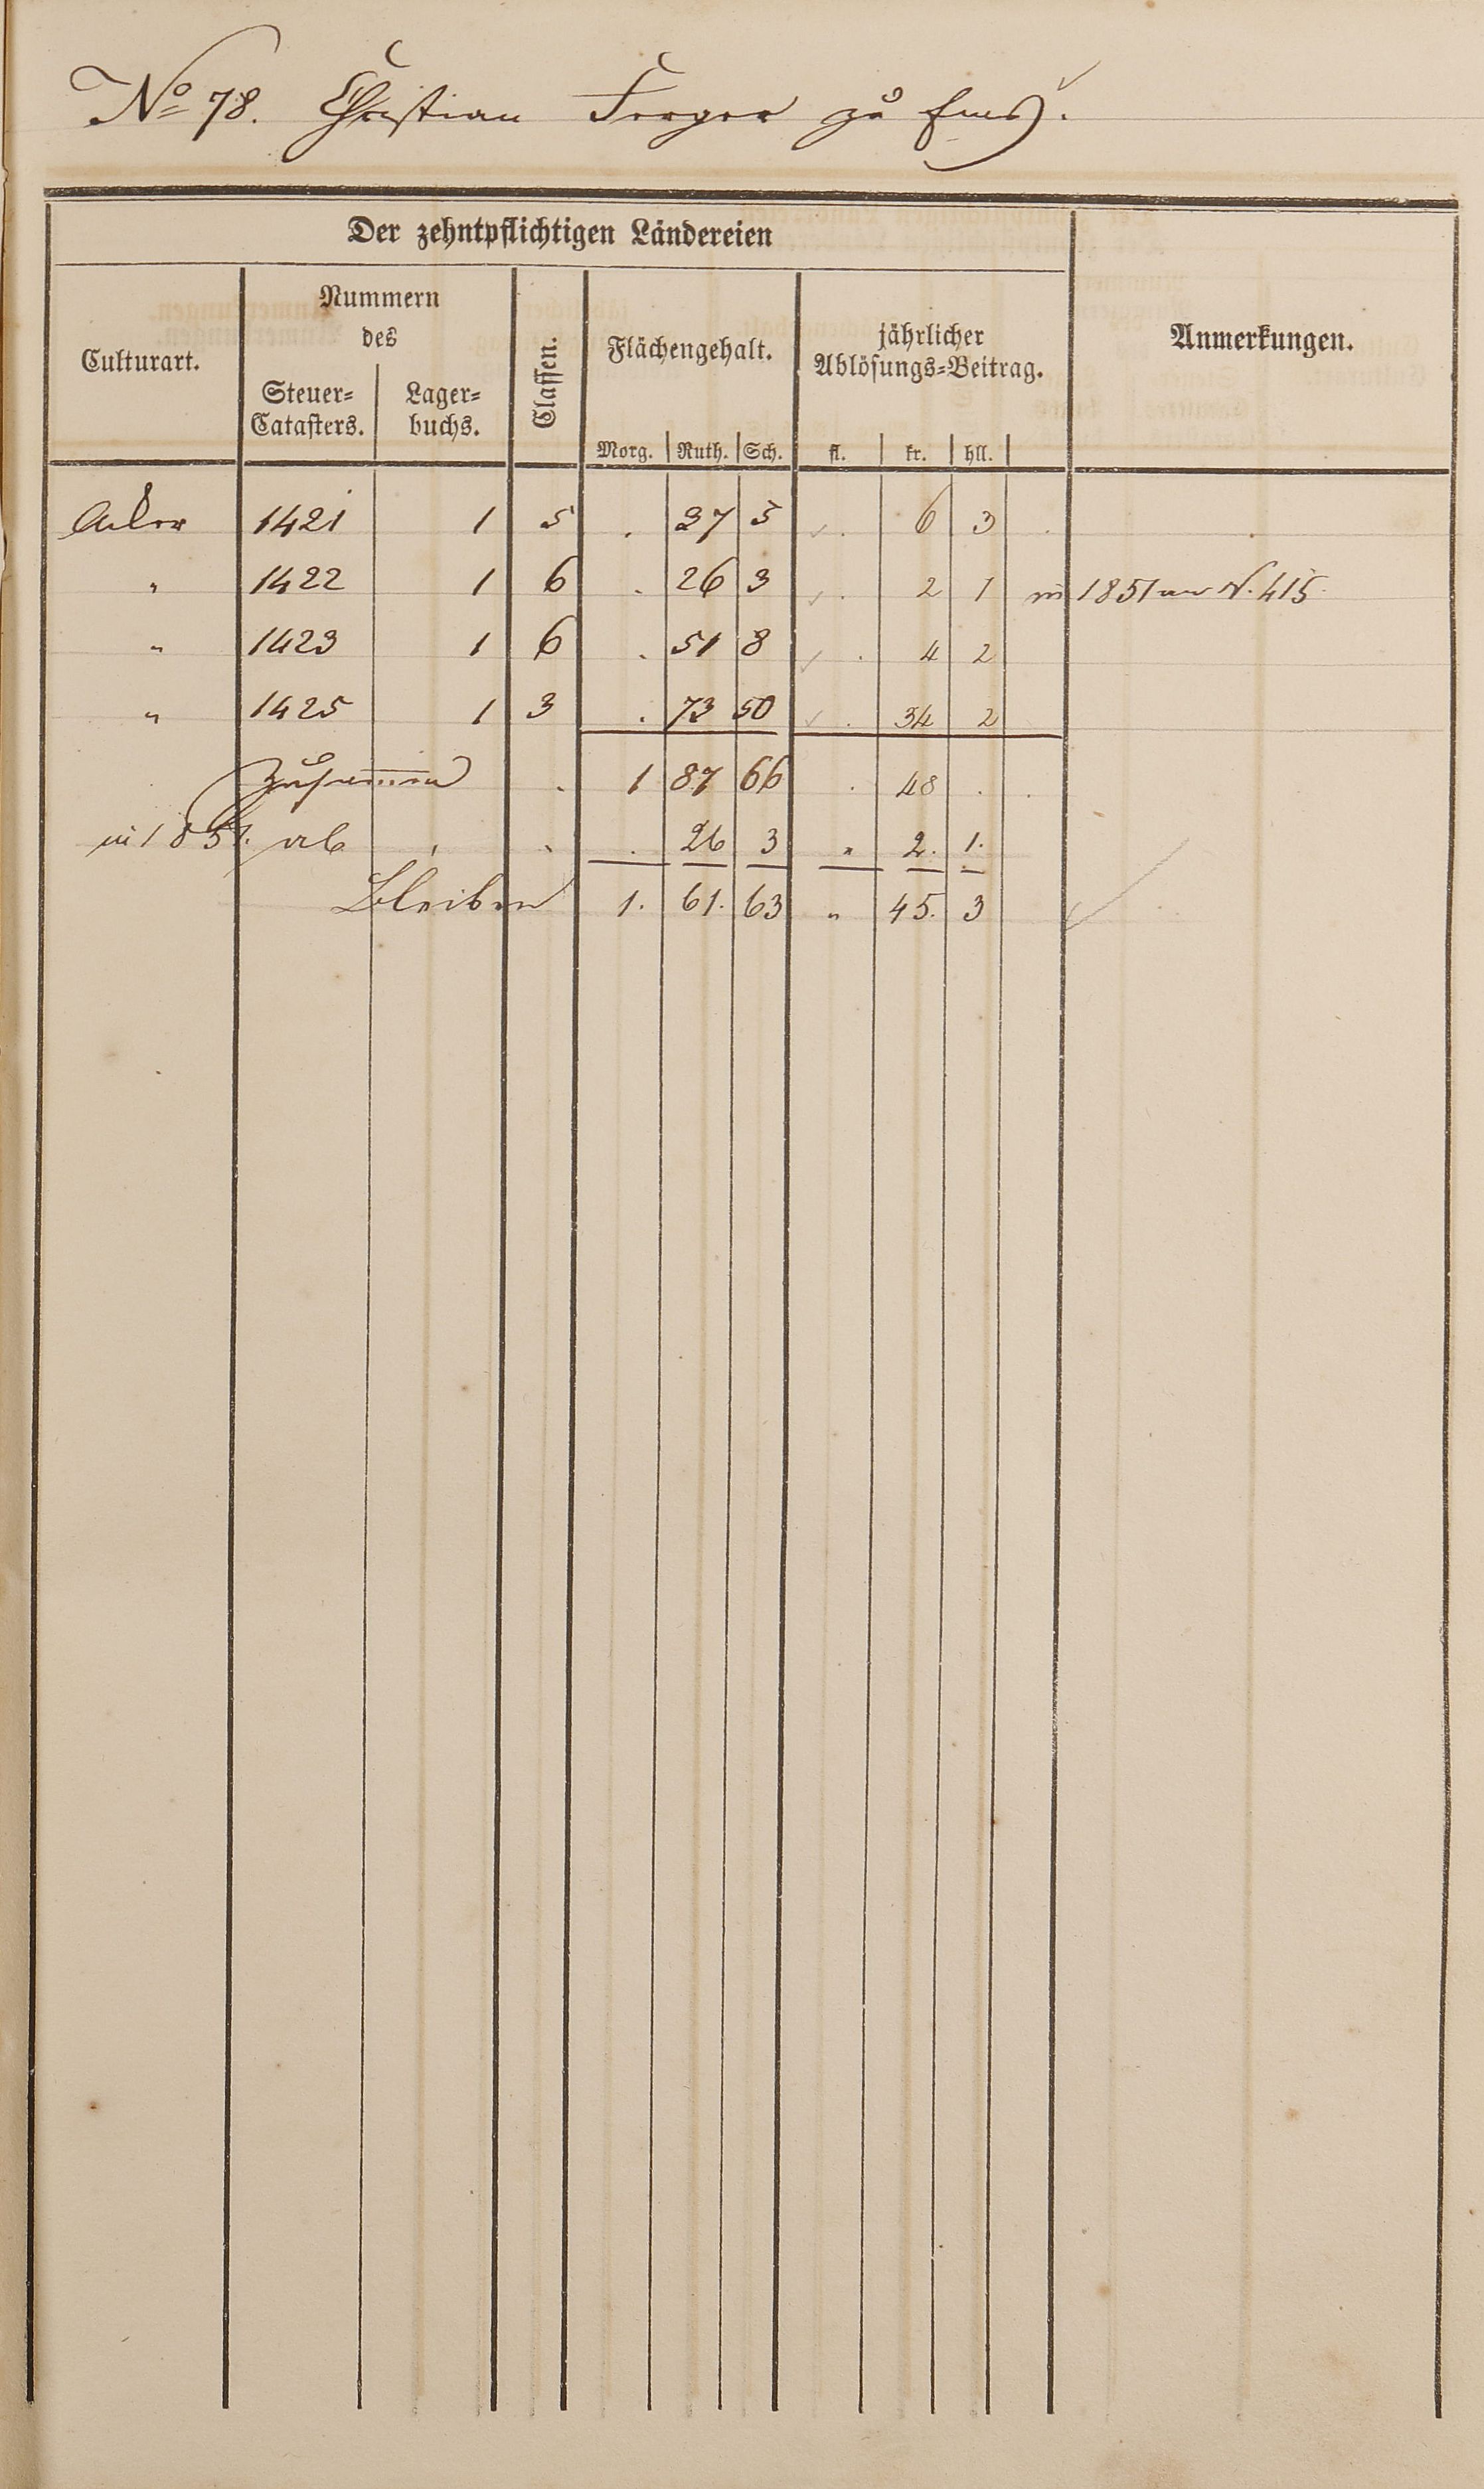 No 78. Christian Ferger zu Ems.
Der zehntpflichtigen Ländereien
Culturart.
Nummern
des
Steuer=
Catasters.
Lager=
buchs.
Classen.
Flächengehalt.
Morg. Ruth. Sch.
jährlicher
Ablösungs=Beitrag.
fl. kr. hll.
Anmerkungen.
Acker 1421 1 5 . 37 5 . 6 3
" 1422 1 6 . 26 3 . 2 1 in 1851 an N. 415.
" 1423 1 6 . 51 8 . 4 2
" 1425 1 3 . 73 50 . 34 2
Zusammen . 1 87 66 . 48 . .
in 1851. ab . 26 3 " 2. 1.
Bleiben 1. 61. 63 " 45. 3